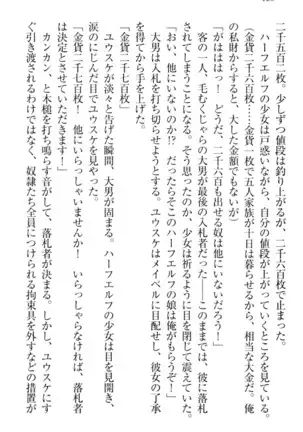 二千五百二枚。少しずつ値段は釣り上がるが、二千六百枚で止まる。
ハーフエルフの少女は戸惑いながら、自分の値段が上がっていくところを見ている。
（金貨二千六百枚……金貨一枚で五人家族が十日は暮らせるから、相当な大金だな。俺
の私財からすると、大した金額でもないが）
客の一人、毛むくじゃらの大男が最後の入札者だった――このままでは、彼に落札
されてしまうことになる。そう思ったのか、少女は祈るように目を閉じて震えている。
「おい、他にいないのか!? 二千六百も出せる奴は他にいないだろう！」
大男は入札を打ち切らせようとする。ユウスケはメイベルに目配せし、彼女の了承
を得てから手を上げた。
「金貨二千七百枚」
ユウスケが淡々と告げた瞬間、大男が固まる。ハーフエルフの少女は目を見開き、
涙のにじんだ目でユウスケを見やった。
「金貨二千七百枚！ 他にいらっしゃいませんか！ いらっしゃらなければ、落札者
は決定とさせていただきます！」
カンカン、と木槌を打ち鳴らす音がして、落札者が決まる。しかし、ユウスケにす
ぐ引き渡されるわけではなく、奴隷たち全員につけられる拘束具を外すなどの措置が